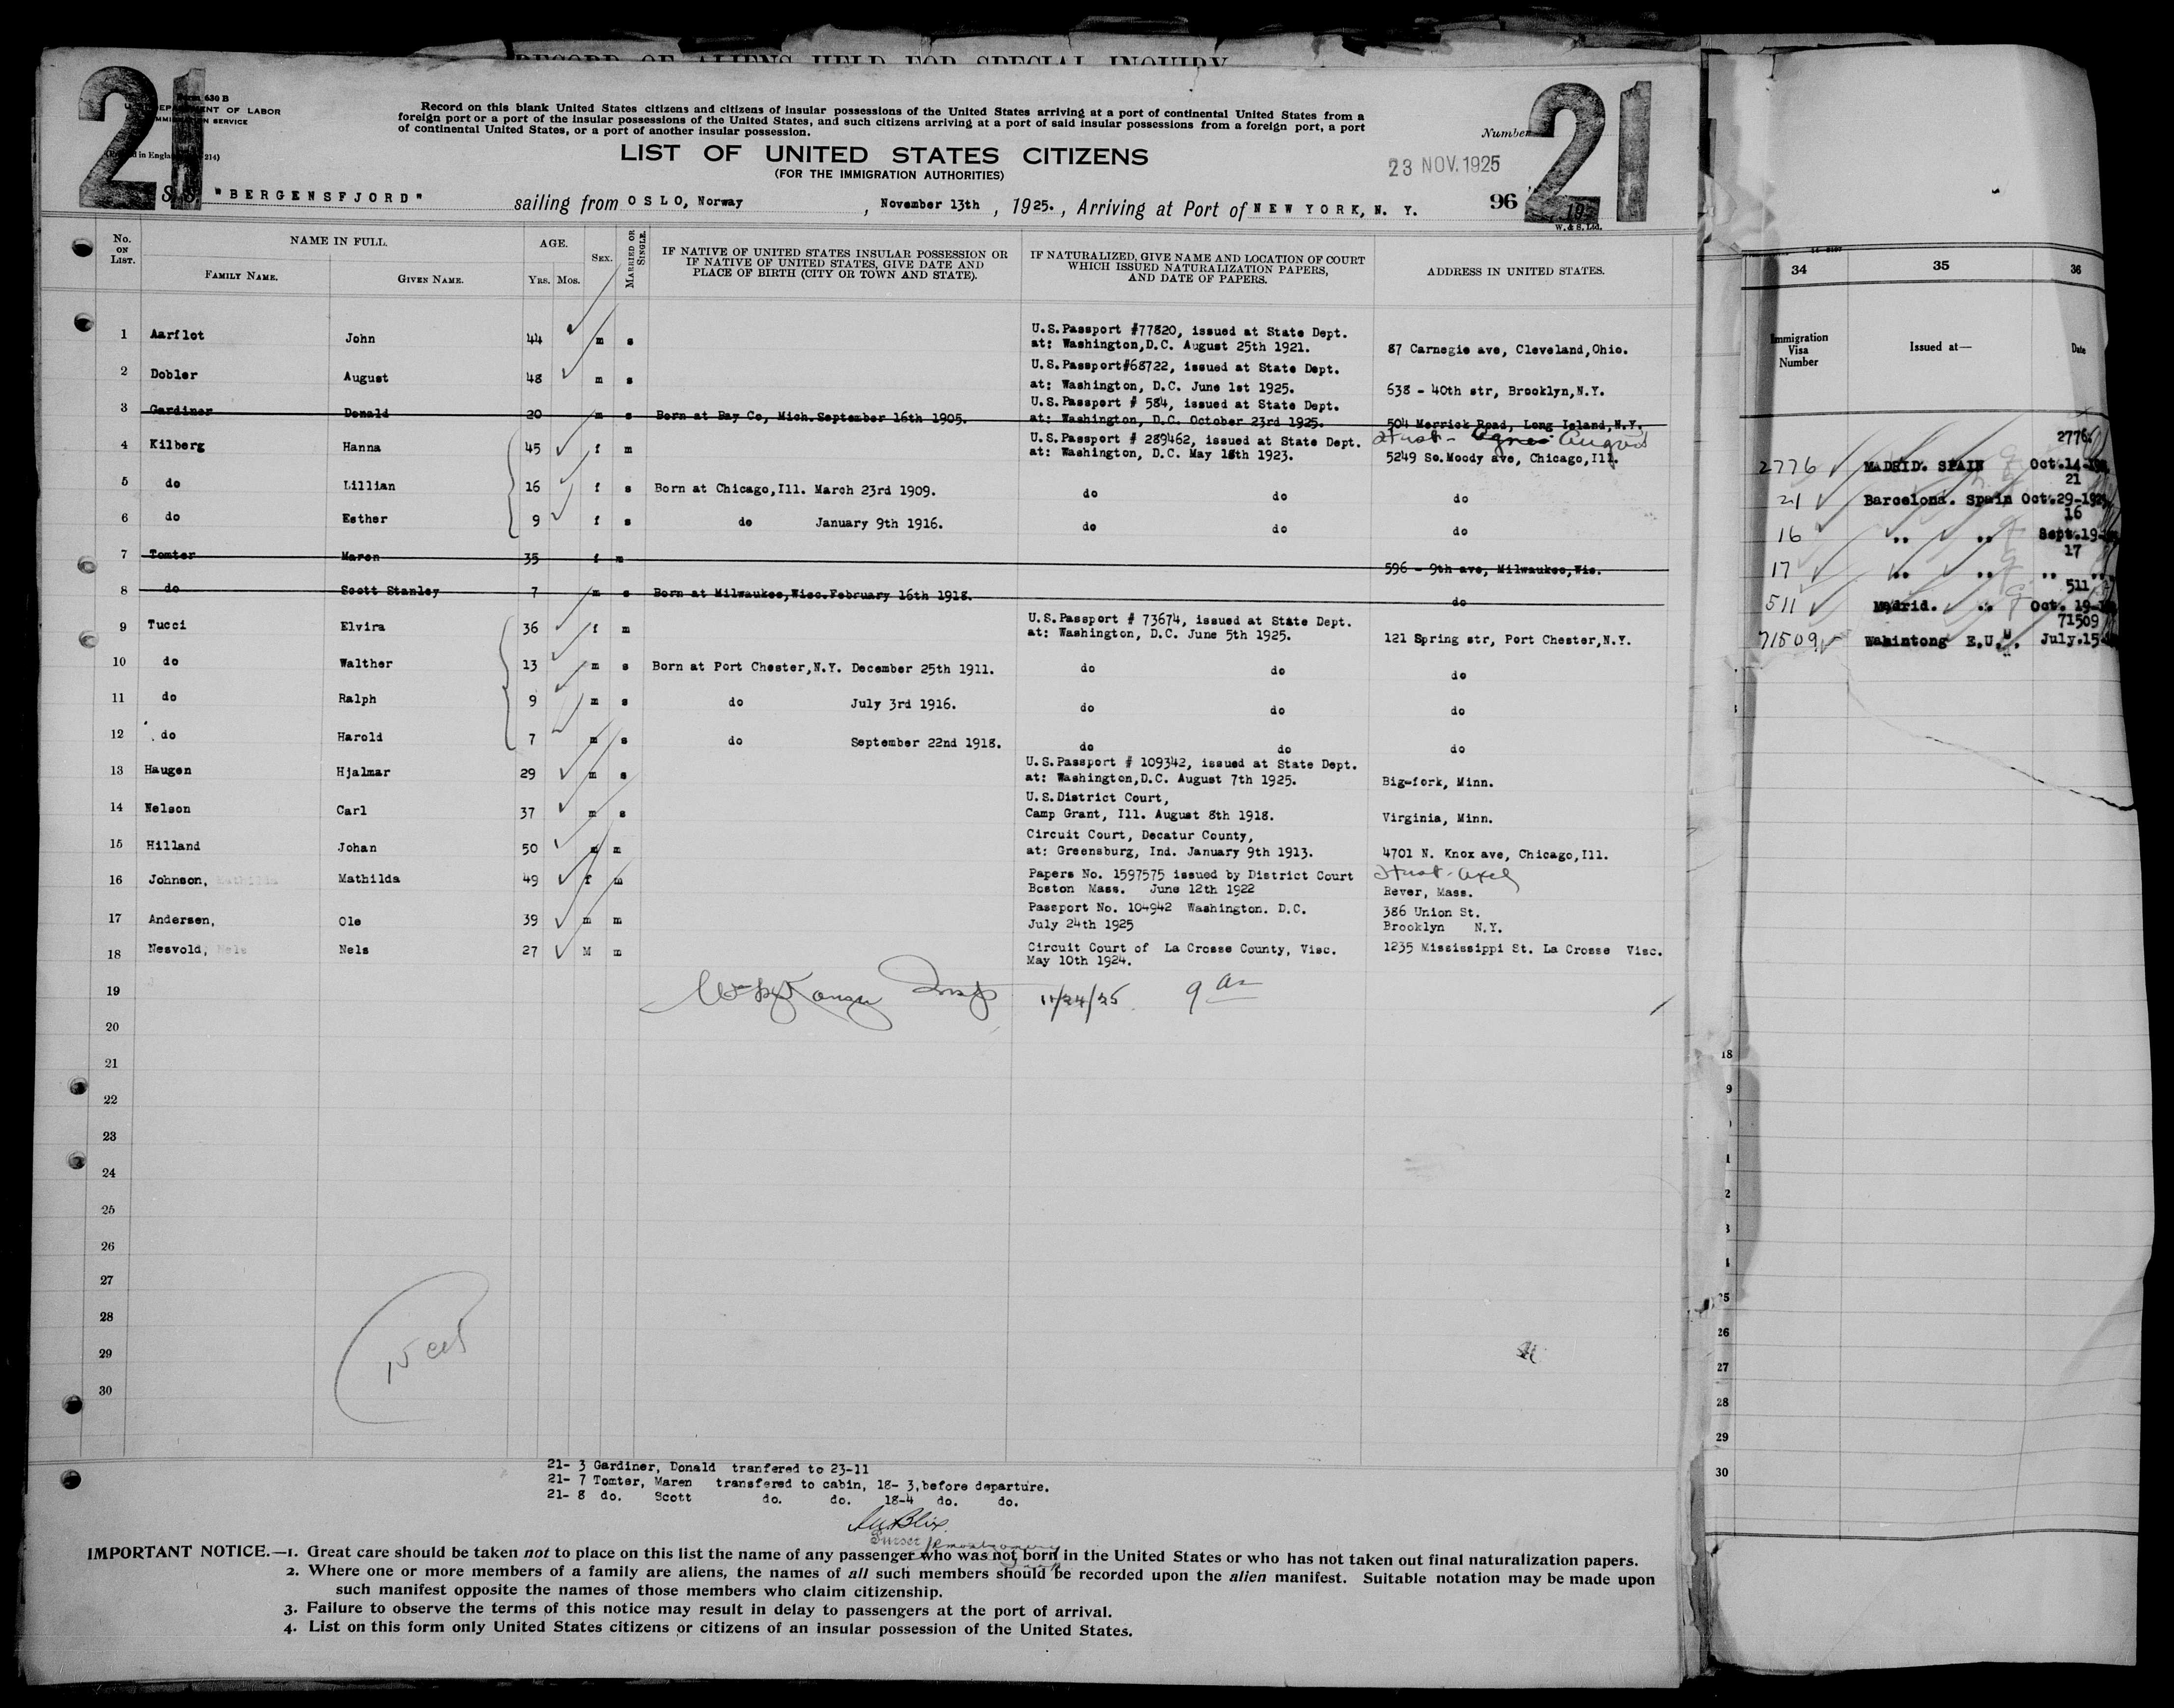 RECORD OF ALIENS HELD FOR SPECIAL INQUIRY
21
Form 630 B
U. S. DEPARTMENT OF LABOR
IMMIGRATION SERVICE
Record on this blank United States citizens and citizens of insular possessions of the United States arriving at a port of continental United States from a
foreign port or a port of the insular possessions of the United States, and such citizens arriving at a port of said insular possessions from a foreign port, a port
of continental United States, or a port of another insular possession.
Number
21
LIST OF UNITED STATES CITIZENS
(FOR THE IMMIGRATION AUTHORITIES)
23 NOV. 1925
S.S. "BERGENSFJORD" sailing from OSLO, Norway, November 13th, 1925., Arriving at Port of NEW YORK, N. Y. 96
W. & S. Ltd.
No. ON LIST. NAME IN FULL. FAMILY NAME. GIVEN NAME. AGE. YRS. MOS. SEX. MARRIED OR SINGLE. IF NATIVE OF UNITED STATES INSULAR POSSESSION OR IF NATIVE OF UNITED STATES, GIVE DATE AND PLACE OF BIRTH (CITY OR TOWN AND STATE). IF NATURALIZED, GIVE NAME AND LOCATION OF COURT WHICH ISSUED NATURALIZATION PAPERS, AND DATE OF PAPERS. ADDRESS IN UNITED STATES.
1 Aarflot John 44 m s U.S.Passport #77820, issued at State Dept.
at: Washington,D.C. August 25th 1921. 87 Carnegie ave, Cleveland,Ohio.
2 Dobler August 48 m s U.S.Passport#68722, issued at State Dept.
at: Washington, D.C. June 1st 1925. 638 - 40th str, Brooklyn,N.Y.
3 Gardiner Donald 20 m s Born at Bay Co, Mich.September 16th 1905. U.S.Passport # 584, issued at State Dept.
at: Washington, D.C. October 23rd 1925. 504 Merrick Road, Long Island,N.Y.
4 Kilberg Hanna 45 f m U.S.Passport # 289462, issued at State Dept.
at: Washington, D.C. May 18th 1923. 5249 So.Moody ave, Chicago,Ill.
5 do Lillian 16 f s Born at Chicago,Ill. March 23rd 1909. do do do
6 do Esther 9 f s do January 9th 1916. do do do
7 Tomter Maren 35 f m 596 - 9th ave, Milwaukee,Wis.
8 do Scott Stanley 7 m s Born at Milwaukee,Wisc.February 16th 1918. do
9 Tucci Elvira 36 f m U.S.Passport # 73674, issued at State Dept.
at: Washington, D.C. June 5th 1925. 121 Spring str, Port Chester,N.Y.
10 do Walther 13 m s Born at Port Chester,N.Y. December 25th 1911. do do do
11 do Ralph 9 m s do July 3rd 1916. do do do
12 do Harold 7 m s do September 22nd 1918. do do do
13 Haugen Hjalmar 29 m s U.S.Passport # 109342, issued at State Dept.
at: Washington,D.C. August 7th 1925. Big-fork, Minn.
14 Nelson Carl 37 m s U.S.District Court,
Camp Grant, Ill. August 8th 1918. Virginia, Minn.
15 Hilland Johan 50 m m Circuit Court, Decatur County,
at: Greensburg, Ind. January 9th 1913. 4701 N. Knox ave, Chicago,Ill.
16 Johnson, Mathilda 49 f m Papers No. 1597575 issued by District Court
Boston Mass. June 12th 1922 Rever, Mass.
17 Andersen, Ole 39 m m Passport No. 104942 Washington. D.C. 386 Union St.
July 24th 1925 Brooklyn N.Y.
18 Nesvold, Nels 27 M m Circuit Court of La Crosse County, Visc. 1235 Mississippi St. La Crosse Visc.
May 10th 1924.
19 11/24/25 9 am
20
21
22
23
24
25
26
27
28
29
30
21- 3 Gardiner, Donald tranfered to 23-11
21- 7 Tomter, Maren transfered to cabin, 18- 3,before departure.
21- 8 do. Scott do. do. 18-4 do. do.
Purser
IMPORTANT NOTICE.—1. Great care should be taken not to place on this list the name of any passenger who was not born in the United States or who has not taken out final naturalization papers.
2. Where one or more members of a family are aliens, the names of all such members should be recorded upon the alien manifest. Suitable notation may be made upon
such manifest opposite the names of those members who claim citizenship.
3. Failure to observe the terms of this notice may result in delay to passengers at the port of arrival.
4. List on this form only United States citizens or citizens of an insular possession of the United States.
34 35 36
Immigration Visa Number Issued at— Date
2776
2776 MADRID. SPAIN Oct.14
21
21 Barcelona. Spain Oct.29
16
16 .. .. Sept.19
17
17 .. .. .. ..
511
511 Madrid. .. Oct. 19
71509
71509 Wahintong E.U. July.15
18
26
27
28
29
30